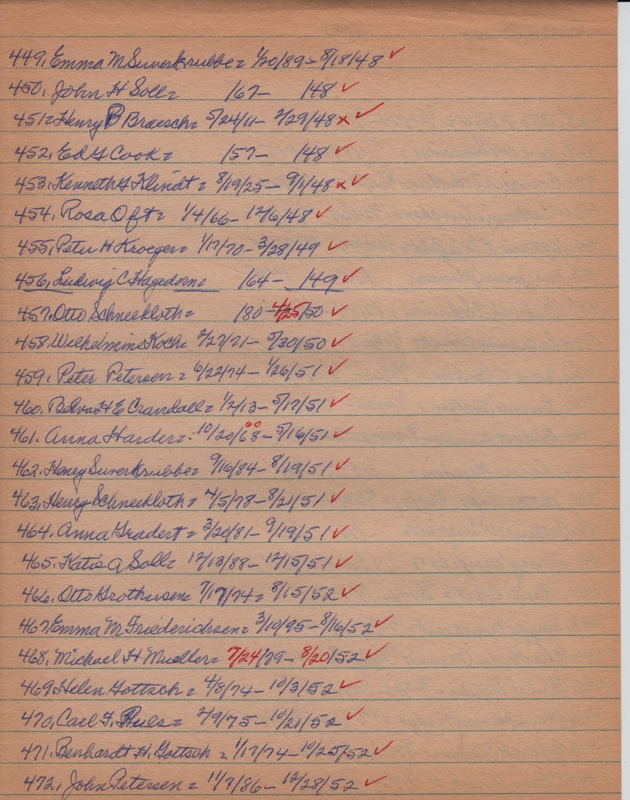 449, Emma M Suverkrubbe = 1/20/89 - 8/18/48 ✓
450, John H Soll = 167 - 148 ✓
451 = Henry B Braesch = 5/24/11 - 2/29/48 x ✓
452, Ed G Cook = 157 - 148 ✓
453, Kenneth G Klindt = 8/19/25 - 9/1/48 x ✓
454, Rosa Oft = 1/4/66 - 12/6/48 ✓
455, Peter H Kroeger = 1/17/70 - 3/28/49 ✓
456, Ludwig C Hagedorn = 164 - 149 ✓
457, Otto Schneekloth = 180 - 4/25/50 ✓
458, Wilhelmine Koch = 2/27/71 - 5/30/50 ✓
459, Peter Petersen = 6/22/74 - 1/26/51 ✓
460, Belva H E Crandall = 1/2/13 - 5/17/51 ✓
461, Anna Harder = 10/20/68 60 - 5/16/51 ✓
462, Henry Suverkrubbe = 9/16/84 - 8/19/51 ✓
463, Henry Schneekloth = 4/5/78 - 8/21/51 ✓
464, Anna Gradert = 3/20/81 - 9/19/51 ✓
465, Katie A Soll = 12/13/88 - 12/15/51 ✓
466, Otto Grothusen = 7/17/74 = 8/15/52 ✓
467, Emma M Friederichsen = 3/10/95 - 8/16/52 ✓
468, Michael H Mueller = 7/24/79 - 8/20/52 ✓
469, Helen Gottsch = 4/8/74 - 10/3/52 ✓
470, Carl F. = 2/9/75 - 10/21/52 ✓
471, Benhardt H. Gottsch = 1/17/74 - 10/25/52 ✓
472, John Petersen = 11/7/86 - 12/28/52 ✓